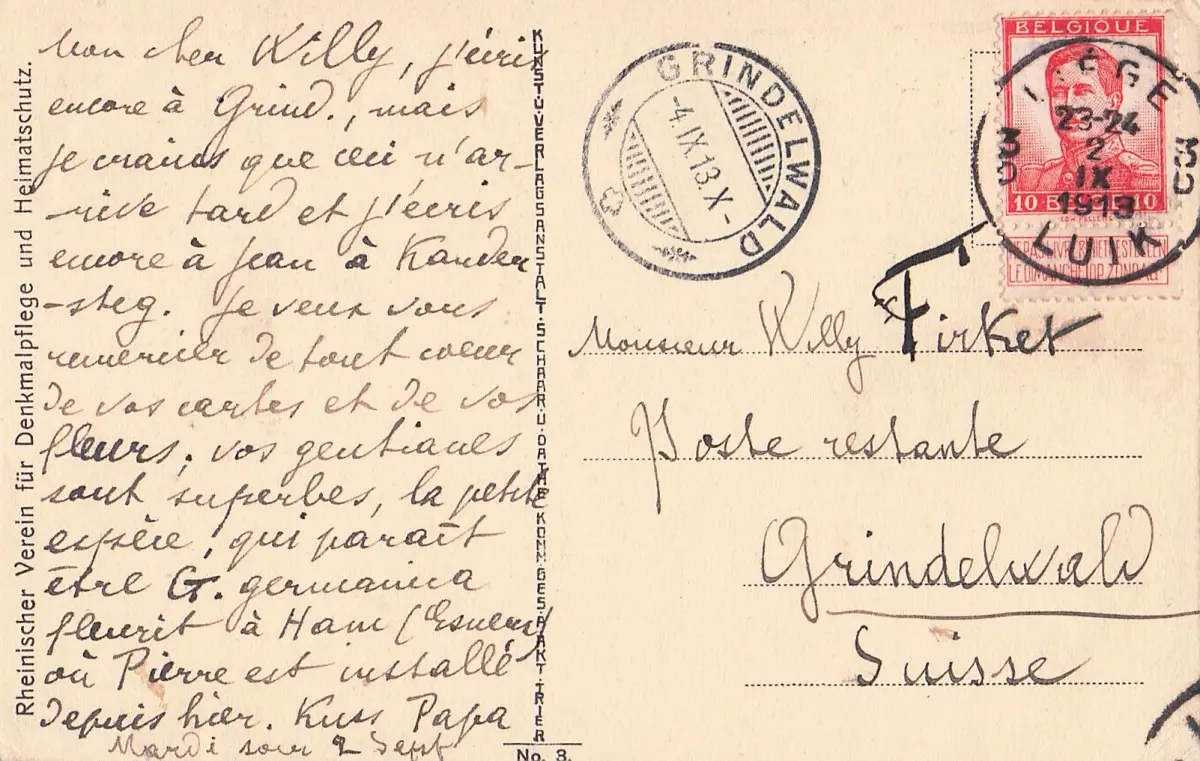 Mon cher Willy, j'écris
encore à Grind., mais
je crains que ceci n'ar-
-rive tard et j'écris
encore à Jean à Kander
-steg. Je veux vous
remercier de tout coeur
de vos cartes et de vos
fleurs; vos gentianes
sont superbes, la petite
espèce, qui paraît
être G. germanica
fleurit à Ham (Esneux)
où Pierre est installé
depuis hier. Kuss Papa
Mardi soir 2 Sept
Rheinischer Verein für Denkmalpflege und Heimatschutz.
KUNST U. VERLAGSANSTALT·SCHAAR U. DATHE KOMM. GES. A. AKT. TRIER
No. 3.
GRINDELWALD
-4.IX.13.X-
BELGIQUE
10 10
LIÉGE
23-24
2
IX
1913
LUIK
Monsieur Willy Firket
Poste restante
Grindelwald
Suisse